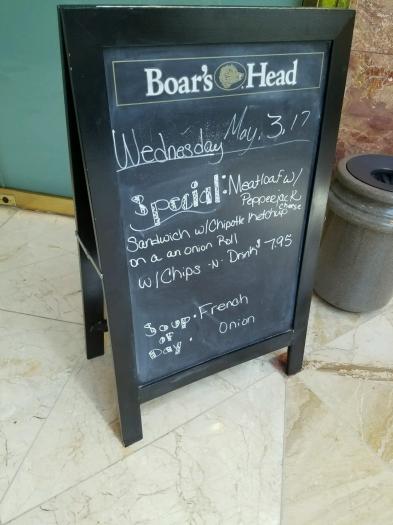 Boar's Head
Wednesday May, 3, 17
Special: Meatloaf w/
Pepperjack
cheese
Sandwich w/Chipotle Ketchup
on a an onion Roll
w/Chips -N- Drink $7.95
Soup. French
of Onion
Day.